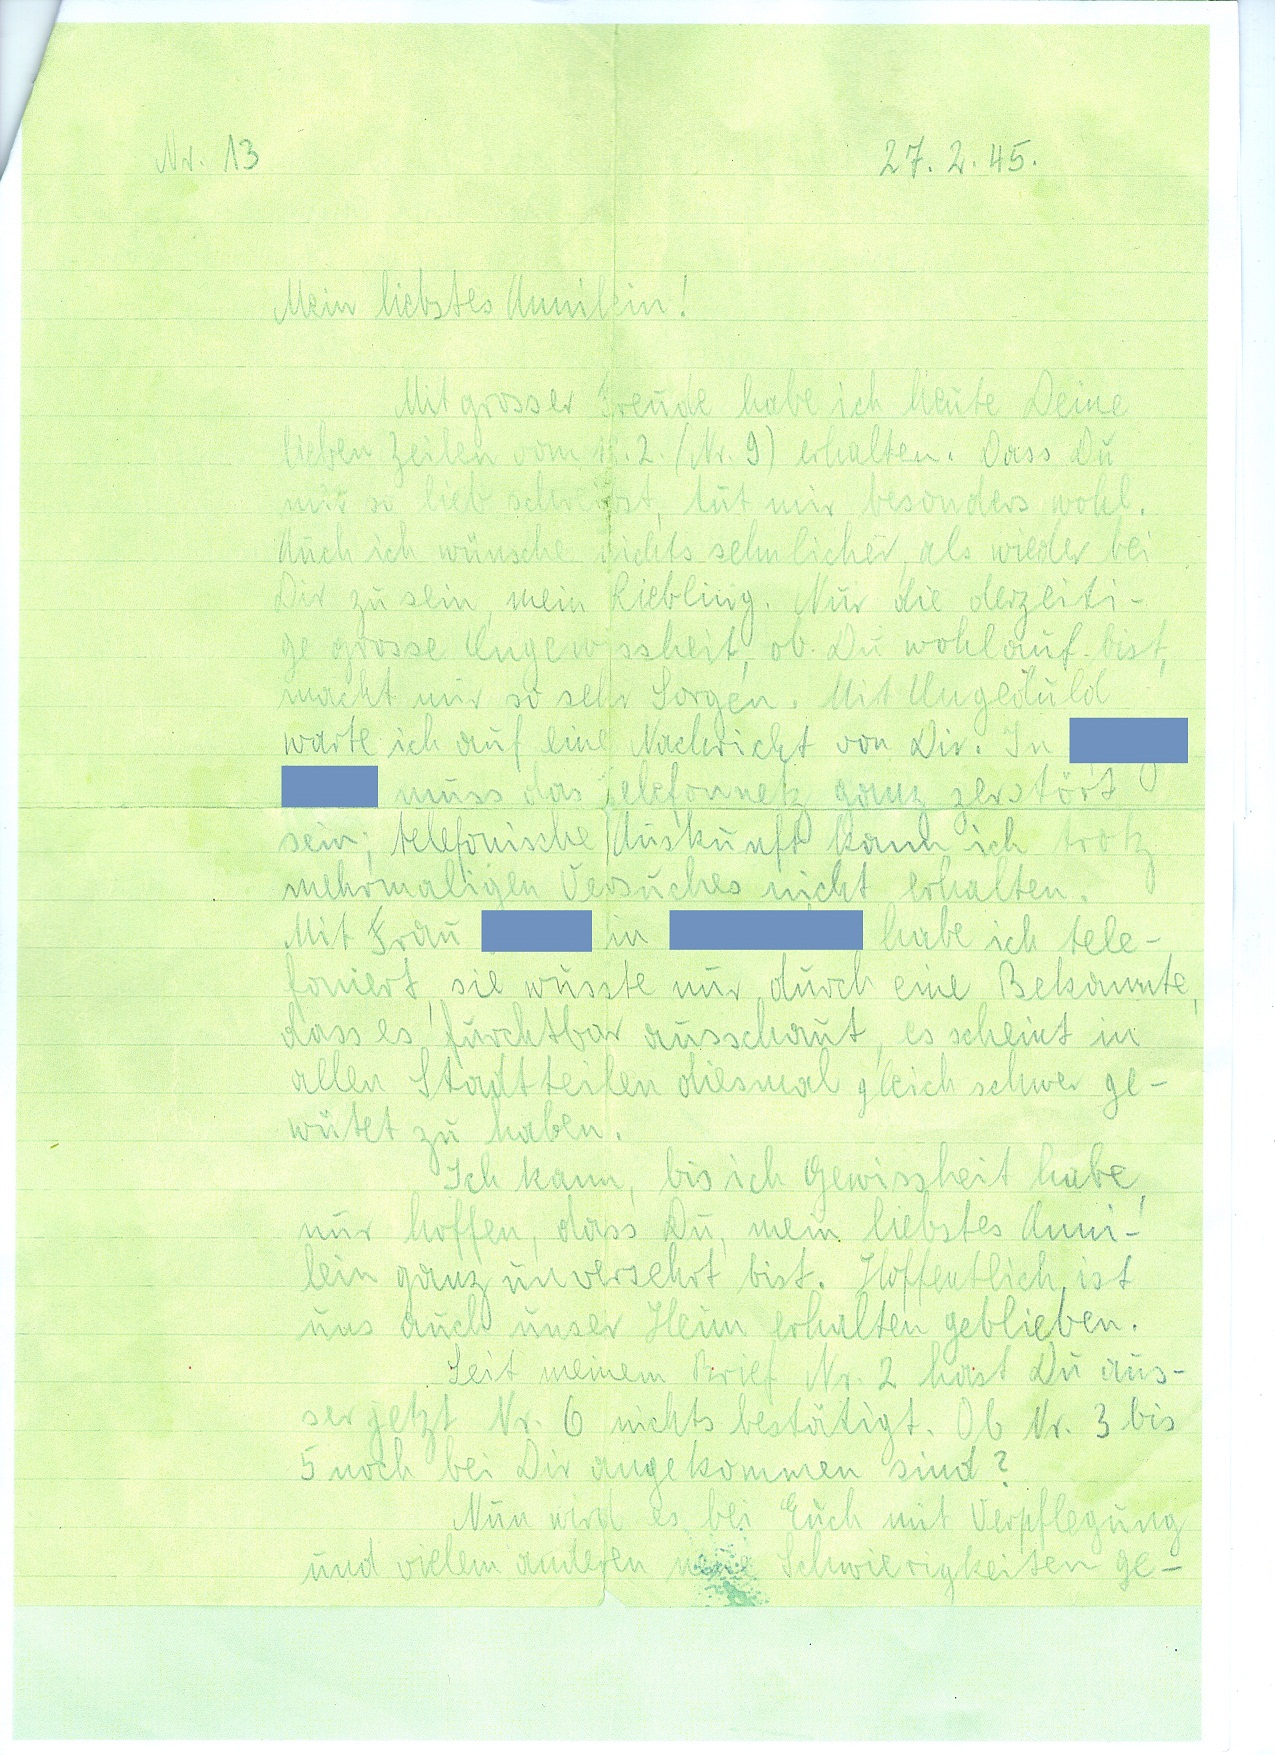 Nr. 13 27. 2. 45.
Mein liebstes Annilein!
Mit grosser Freude habe ich heute Deine
lieben Zeilen vom .2. (Nr. 9) erhalten. Dass Du
mir so lieb schreibst, tut mir besonders wohl.
Auch ich wünsche nichts sehnlicher, als wieder bei
Dir zu sein, mein Liebling. Nur die derzeiti-
ge grosse Ungewissheit, ob Du wohlauf bist,
macht mir so sehr Sorgen. Mit Ungeduld
warte ich auf eine Nachricht von Dir. In
muss das Telefonnetz ganz zerstört
sein; telefonische Auskunft kann ich trotz
mehrmaligen Versuches nicht erhalten.
Mit Frau in habe ich tele-
foniert, sie wusste nur durch eine Bekannte,
dass es furchtbar ausschaut, es scheint in
allen Stadtteilen diesmal gleich schwer ge-
wütet zu haben.
Ich kann, bis ich Gewissheit habe,
nur hoffen, dass Du, mein liebstes Anni-
lein ganz unversehrt bist. Hoffentlich ist
uns auch unser Heim erhalten geblieben.
Seit meinem Brief Nr. 2 hast Du aus-
ser jetzt Nr. 6 nichts bestätigt. Ob Nr. 3 bis
5 noch bei Dir angekommen sind?
Nun wird es bei Euch mit Verpflegung
und vielem anderen neue Schwierigkeiten ge-